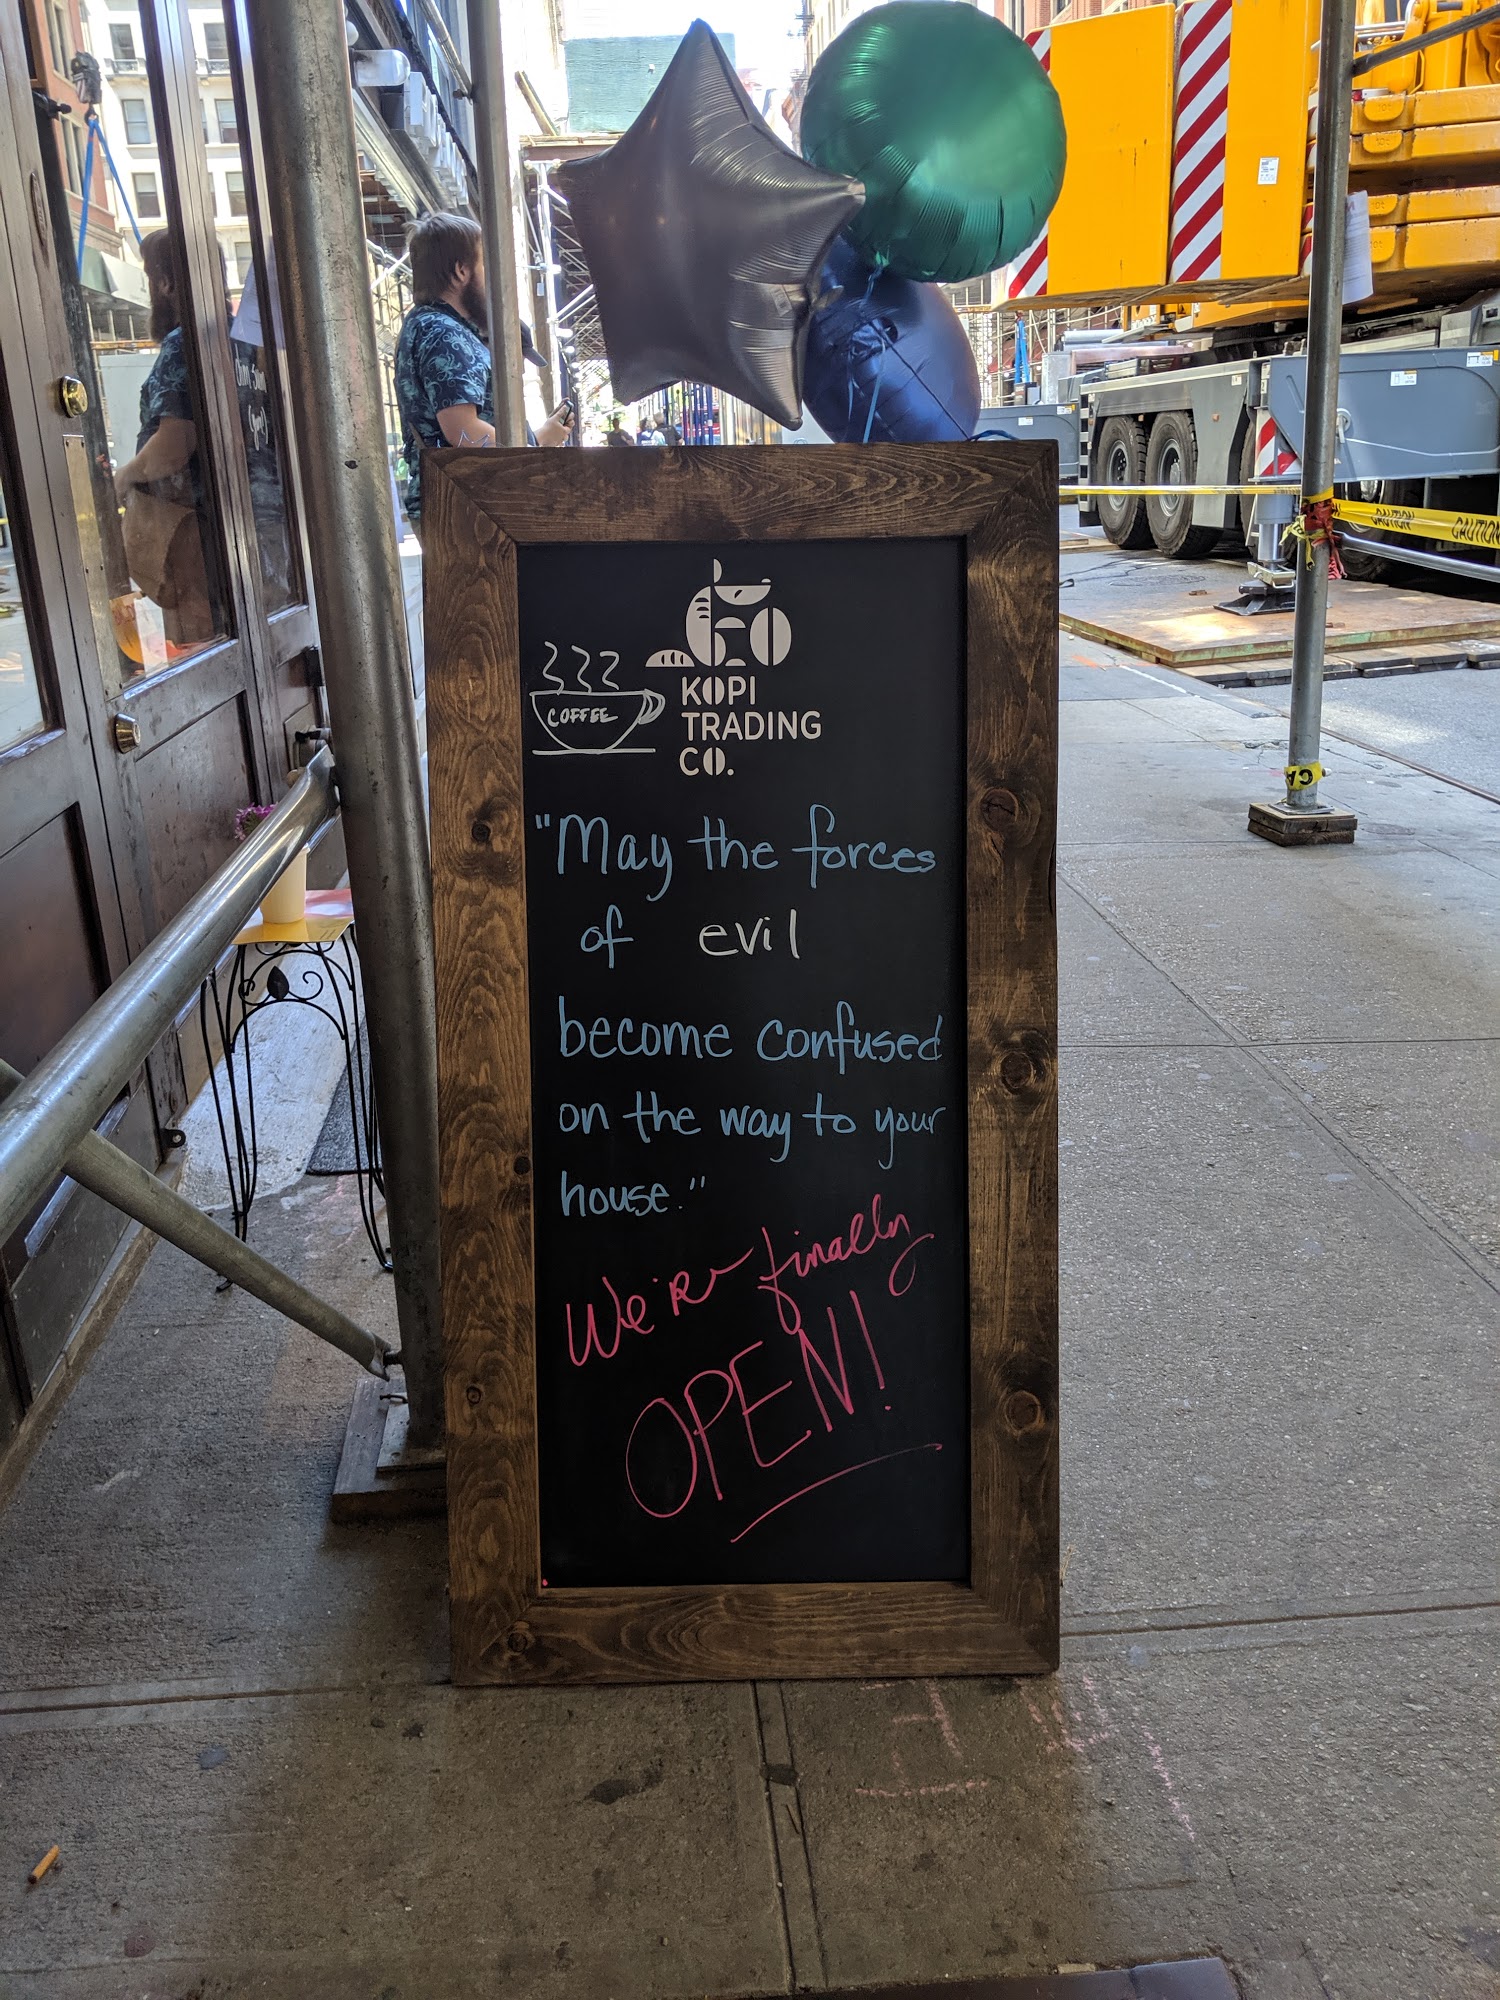 COFFEE
KOPI
TRADING
CO.
"May the forces
of evil
become confused
on the way to your
house."
We're finally
OPEN!
CAUTION
CAUTION
CA